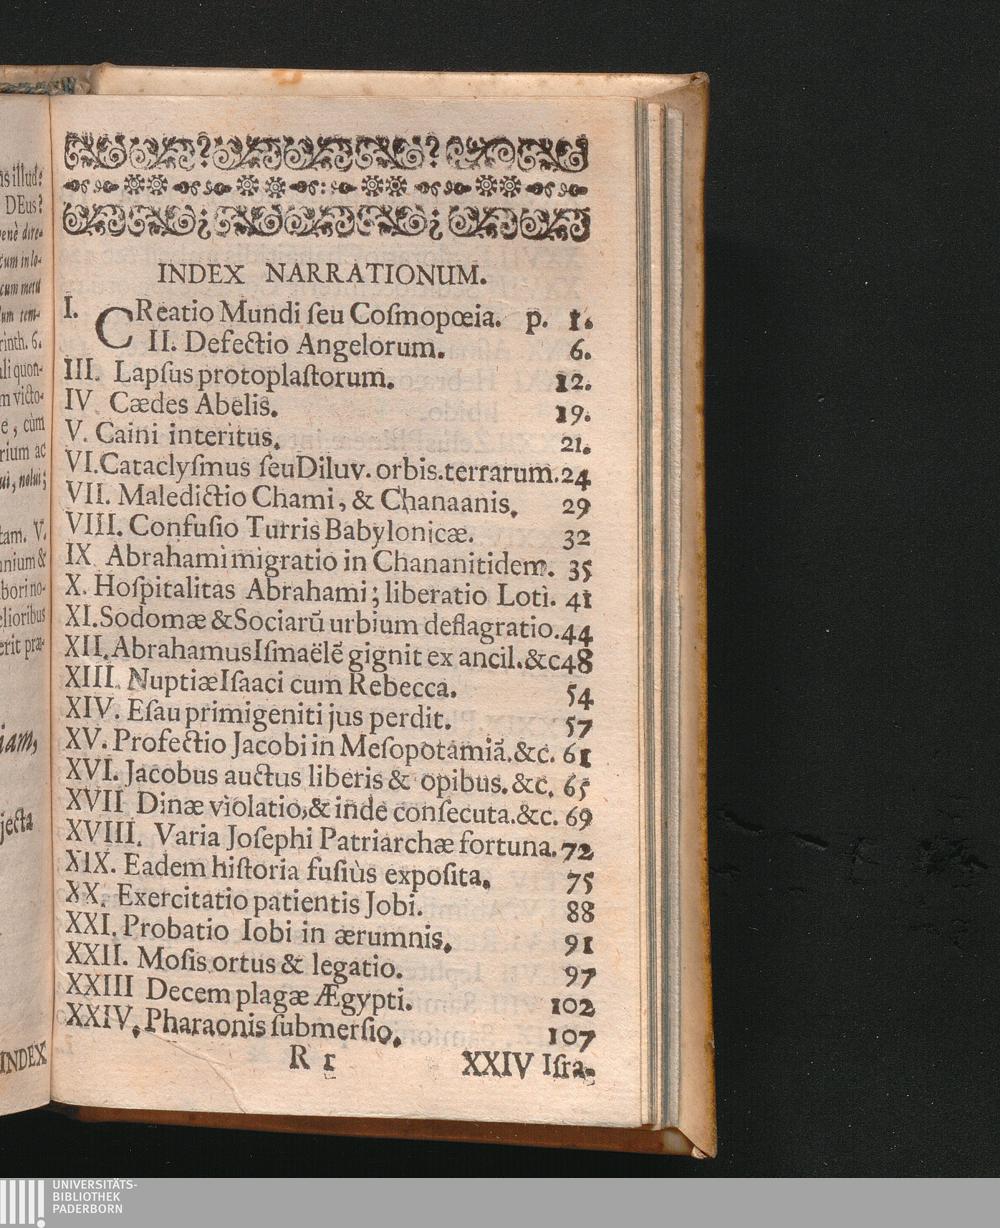 is illud:
DEus?
venè dire-
tum in lo-
cum metu
um tem-
rinth. 6.
ali quon-
m victo-
e, cùm
rium ac
ui, nolui;
tam. V.
nnium &
bori no-
elioribus
erit præ-
iam,
jecta
INDEX
INDEX NARRATIONUM.
I. CReatio Mundi ſeu Coſmopœia. p. 1.
II. Defectio Angelorum. 6.
III. Lapſus protoplaſtorum. 12.
IV Cædes Abelis. 19.
V. Caini interitus. 21.
VI.Cataclyſmus ſeuDiluv. orbis.terrarum.24
VII. Maledictio Chami, & Chanaanis. 29
VIII. Confuſio Turris Babylonicæ. 32
IX Abrahami migratio in Chananitidem. 35
X. Hoſpitalitas Abrahami; liberatio Loti. 41
XI.Sodomæ &Sociarũ urbium deflagratio.44
XII.AbrahamusIſmaëlẽ gignit ex ancil.&c48
XIII. NuptiæIſaaci cum Rebecca. 54
XIV. Eſau primigeniti jus perdit. 57
XV. Profectio Jacobi in Meſopotamiã.&c. 61
XVI. Jacobus auctus liberis & opibus.&c. 65
XVII Dinæ violatio,& inde conſecuta.&c. 69
XVIII. Varia Joſephi Patriarchæ fortuna. 72
XIX. Eadem hiſtoria fuſiùs expoſita. 75
XX. Exercitatio patientis Jobi. 88
XXI. Probatio Iobi in ærumnis. 91
XXII. Moſis ortus & legatio. 97
XXIII Decem plagæ Ægypti. 102
XXIV. Pharaonis ſubmerſio. 107
R r XXIV Iſra-
UNIVERSITÄTS-
BIBLIOTHEK
PADERBORN